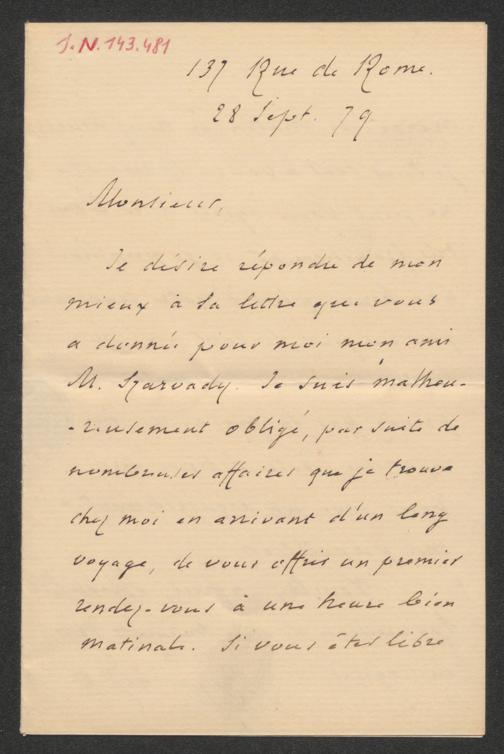 I.N. 143.481
137 Rue de Rome.
28 Sept. 79
Monsieur,
Je désire répondre de mon
mieux à la lettre que vous
a donnée pour moi mon ami
M. Szarvady. Je suis malheu-
-reusement obligé, par suite de
nombreuses affaires que je trouve
chez moi en arrivant d'un long
voyage, de vous offrir un premier
rendez-vous à une heure bien
matinale. Si vous êtes libre